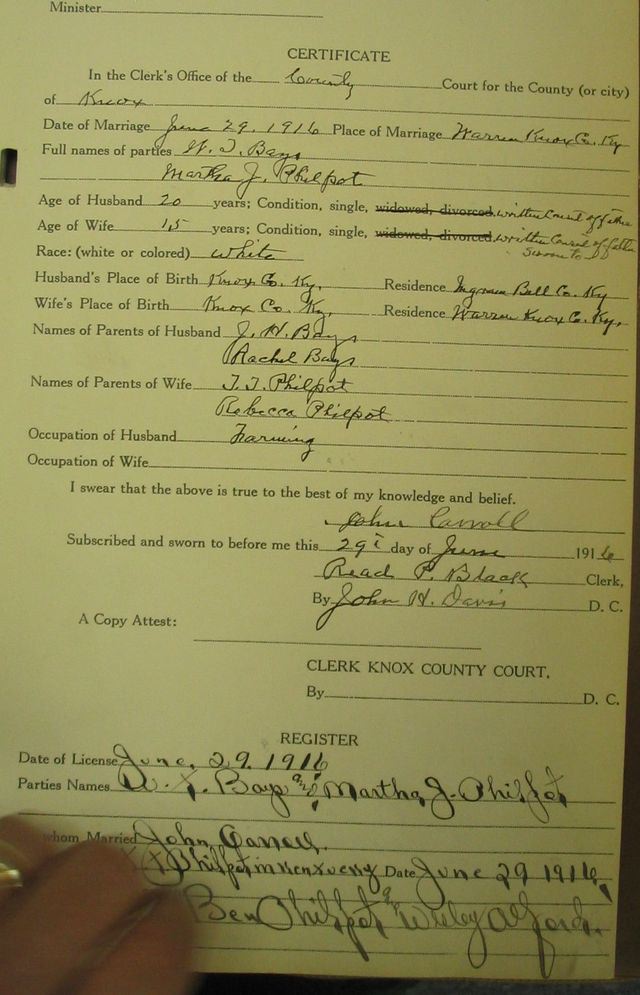 Minister
CERTIFICATE
In the Clerk's Office of the County Court for the County (or city)
of Knox
Date of Marriage June 29, 1916 Place of Marriage Warren Knox Co. Ky
Full names of parties W. T. Bays
Martha J. Philpot
Age of Husband 20 years; Condition, single, widowed, divorced, written Consent of father
Age of Wife 15 years; Condition, single, widowed, divorced, written Consent of father
sworn to
Race: (white or colored) white
Husband's Place of Birth Knox Co. Ky, Residence Bell Co. Ky
Wife's Place of Birth Knox Co. Ky, Residence Warren Knox Co. Ky,
Names of Parents of Husband J. H. Bays
Rachel Bays
Names of Parents of Wife T. T. Philpot
Rebecca Philpot
Occupation of Husband Farming
Occupation of Wife
I swear that the above is true to the best of my knowledge and belief.
John Carroll
Subscribed and sworn to before me this 29 day of June 1916
Read P. Black Clerk,
By John H. Davis D. C.
A Copy Attest:
CLERK KNOX COUNTY COURT.
By D. C.
REGISTER
Date of License June, 29, 1916
Parties Names W. T. Bays and Martha J. Philpot
whom Married John
Philpot in Date June 29 1916,
Ben Philpot and Wesley Alford.